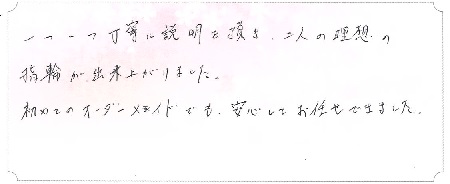 一つ一つ丁寧に説明を頂き、二人の理想の
指輪が出来上がりました。
初めてのオーダーメイドでも、安心してお任せできました。